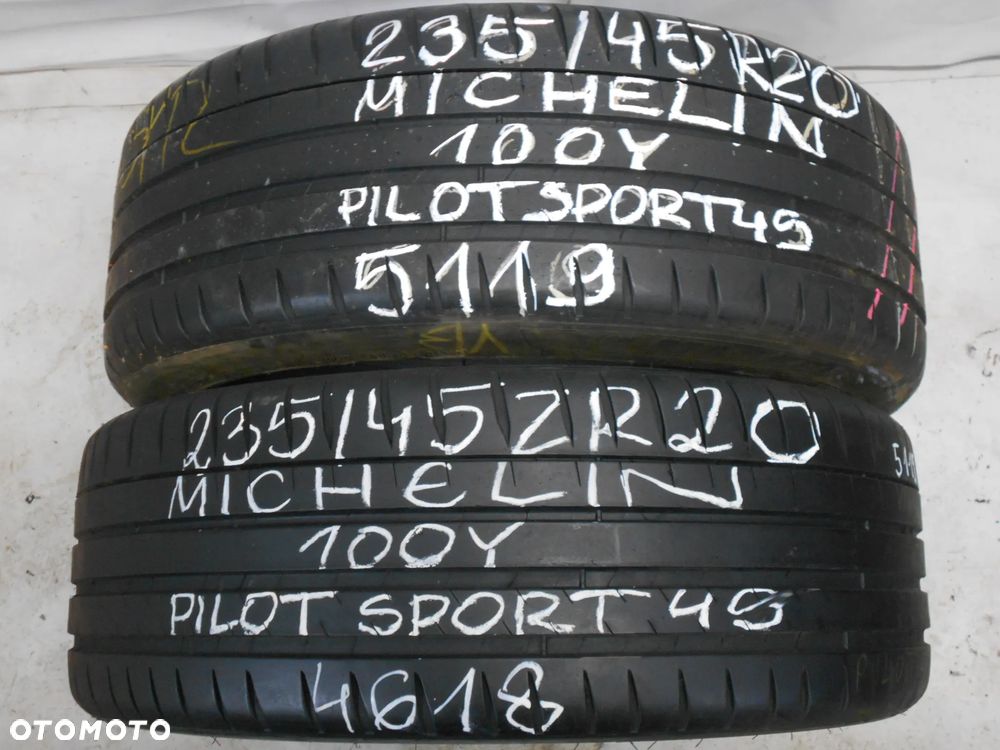 235/45R20
MICHELIN
100Y
PILOT SPORT 4S
5119
235/45ZR20
MICHELIN
100Y
PILOT SPORT 4S
4618
OTOMOTO